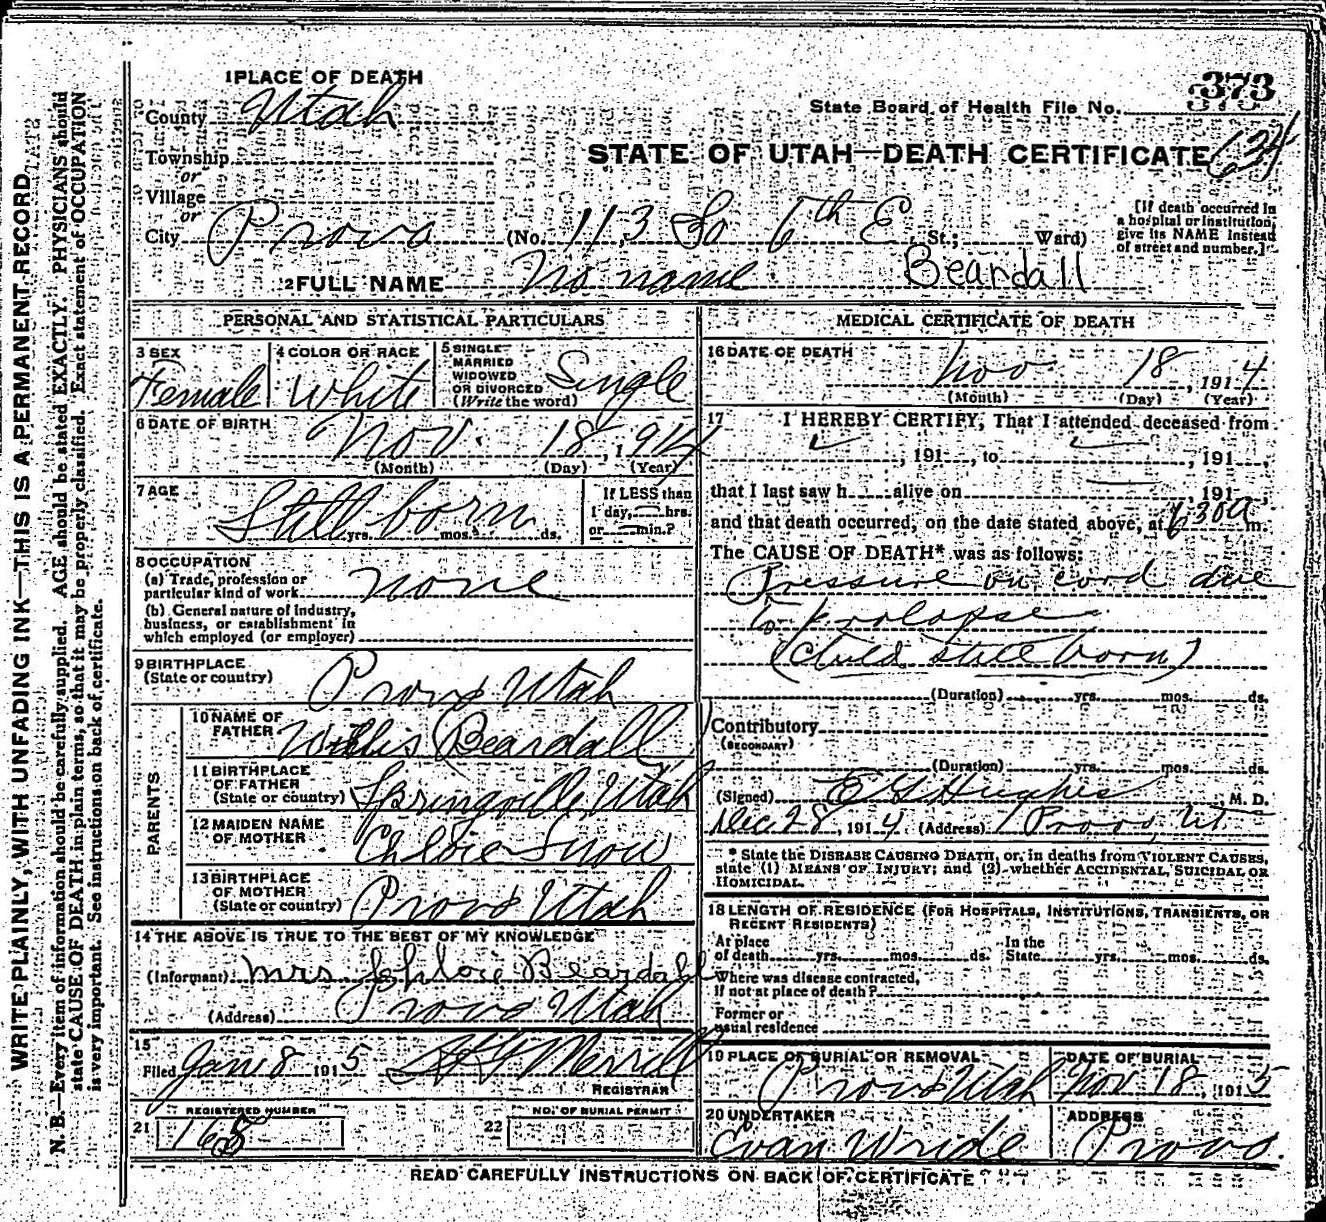 WRITE PLAINLY, WITH UNFADING INK—THIS IS A PERMANENT RECORD
N. B.—Every item of information should be carefully supplied. AGE should be stated EXACTLY. PHYSICIANS should
state CAUSE OF DEATH in plain terms, so that it may be properly classified. Exact statement of OCCUPATION
is very important. See instructions on back of certificate.
1 PLACE OF DEATH
373
State Board of Health File No.
County Utah
STATE OF UTAH—DEATH CERTIFICATE 634
Township
or
Village
or
City Provo (No. 113 So 6th E St.; Ward)
[If death occurred in
a hospital or institution,
give its NAME instead
of street and number.]
2 FULL NAME No name Beardall
PERSONAL AND STATISTICAL PARTICULARS
3 SEX
Female
4 COLOR OR RACE
White
5 SINGLE
MARRIED
WIDOWED
OR DIVORCED
(Write the word)
Single
6 DATE OF BIRTH
Nov. 18, 1914
(Month) (Day) (Year)
7 AGE
Still born
yrs. mos. ds.
If LESS than
1 day, hrs.
or min.?
8 OCCUPATION
(a) Trade, profession or
particular kind of work none
(b) General nature of industry,
business, or establishment in
which employed (or employer)
9 BIRTHPLACE
(State or country) Provo Utah
PARENTS
10 NAME OF
FATHER Willis Beardall
11 BIRTHPLACE
OF FATHER
(State or country) Springville, Utah
12 MAIDEN NAME
OF MOTHER Chloie Snow
13 BIRTHPLACE
OF MOTHER
(State or country) Provo Utah
14 THE ABOVE IS TRUE TO THE BEST OF MY KNOWLEDGE
(Informant) Mrs. Beardall
(Address) Provo Utah
15
Filed Jan 8 1915 Merrill
REGISTRAR
REGISTERED NUMBER
21 165
NO. OF BURIAL PERMIT
22
MEDICAL CERTIFICATE OF DEATH
16 DATE OF DEATH
Nov 18, 1914
(Month) (Day) (Year)
17 I HEREBY CERTIFY, That I attended deceased from
, 191 , to , 191 ,
that I last saw h alive on , 191 ,
and that death occurred, on the date stated above, at 630 a m.
The CAUSE OF DEATH* was as follows:
Pressure on cord due
to prolapse
(Child still born)
(Duration) yrs. mos. ds.
Contributory
(SECONDARY)
(Duration) yrs. mos. ds.
(Signed) E G Hughes M. D.
Dec 28, 1914 (Address) Provo, Ut
* State the DISEASE CAUSING DEATH, or, in deaths from VIOLENT CAUSES,
state (1) MEANS OF INJURY; and (2) whether ACCIDENTAL, SUICIDAL OR
HOMICIDAL.
18 LENGTH OF RESIDENCE (FOR HOSPITALS, INSTITUTIONS, TRANSIENTS, OR
RECENT RESIDENTS)
At place
of death yrs. mos. ds.
In the
State yrs. mos. ds.
Where was disease contracted,
if not at place of death?
Former or
usual residence
19 PLACE OF BURIAL OR REMOVAL
Provo Utah
DATE OF BURIAL
Nov 18, 1915
20 UNDERTAKER
Evan Wride
ADDRESS
Provo.
READ CAREFULLY INSTRUCTIONS ON BACK OF CERTIFICATE